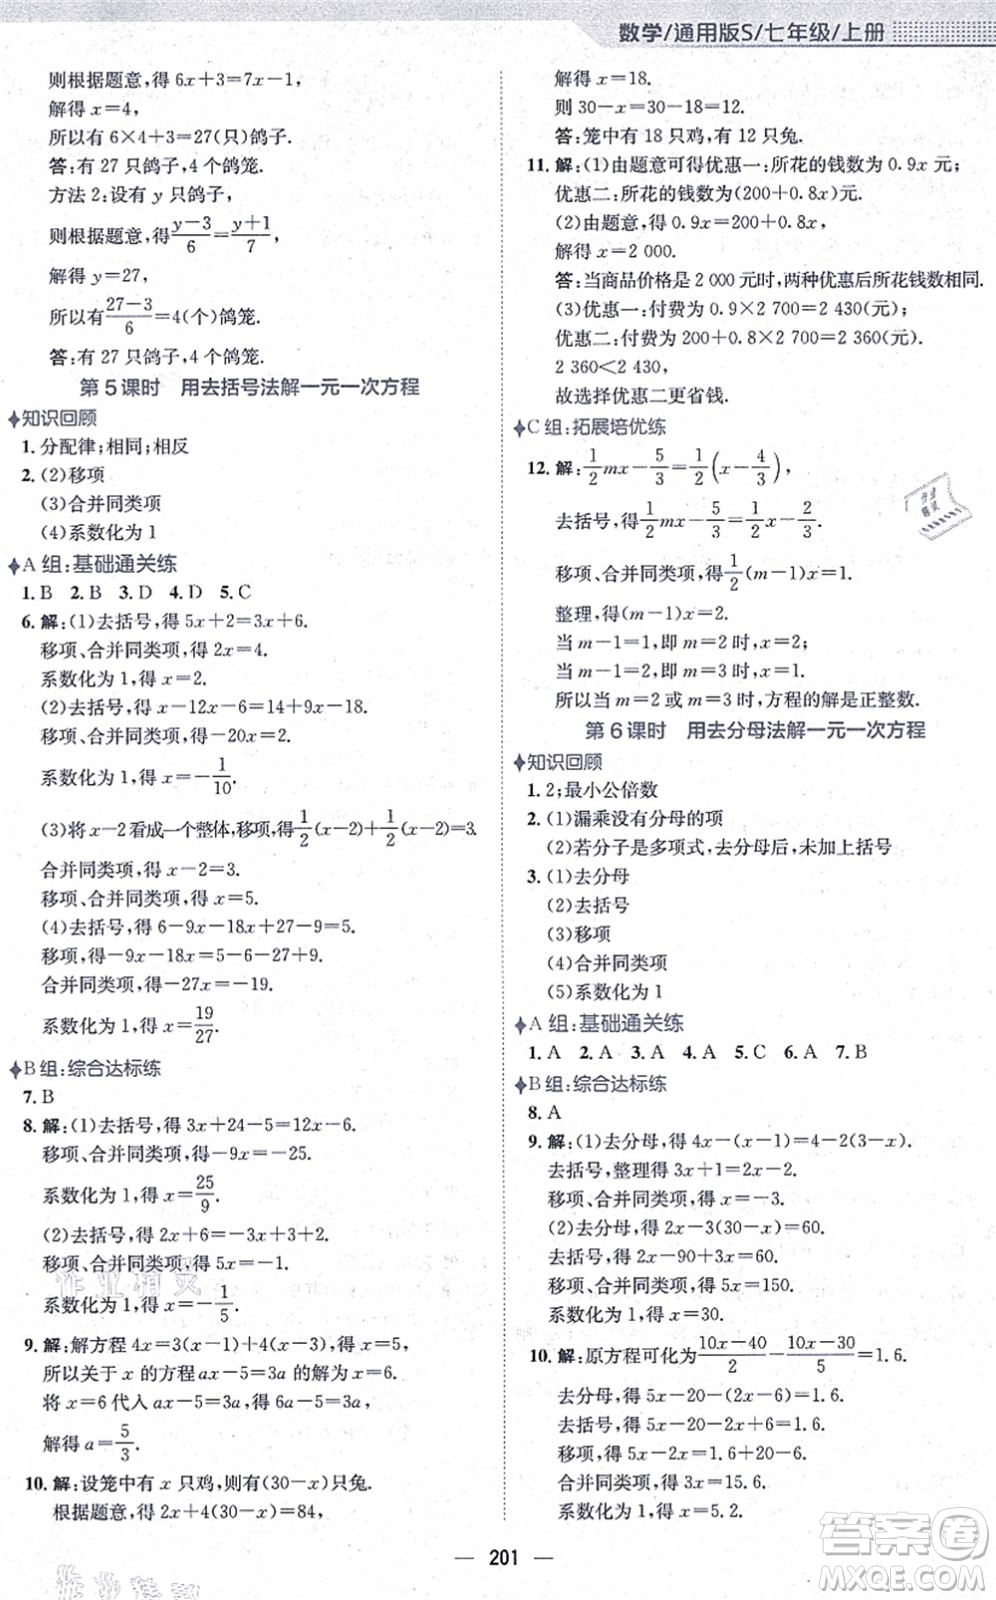 数学/通用版S/七年级/上册
则根据题意,得 6x+3=7x-1,
解得 x=4,
所以有 6×4+3=27(只)鸽子.
答:有 27 只鸽子,有 4 个鸽笼.
方法 2:设有 y 只鸽子,
则根据题意,得(y-3)/6=(y+1)/7,
解得 y=27,
所以有(27-3)/6=4(个)鸽笼.
答:有 27 只鸽子,有 4 个鸽笼.
第 5 课时 用去括号法解一元一次方程
知识回顾
1. 分配律;相同;相反
2. (2)移项
(3)合并同类项
(4)系数化为 1
A 组:基础通关练
1. B 2. B 3. D 4. D 5. C
6. 解:(1)去括号,得 5x+2=3x+6.
移项、合并同类项,得 2x=4.
系数化为 1,得 x=2.
(2)去括号,得 x-12x-6-9x=-4.
移项、合并同类项,得-20x=2.
系数化为 1,得 x=-1/10.
(3)将 x-2看成一个整体,移项,得1/2(x-2)+1/2(x-2)=3.
合并同类项,得 x-2=3.
移项、合并同类项,得 x=5.
(4)去括号,得 6-9x-18x+27=14.
移项,得-9x-18x=14-6-27.
合并同类项,得-27x=-19.
系数化为 1,得 x=19/27.
B 组:综合达标练
7. B
8. 解:(1)去括号,得 3x+24-5=12x-6.
移项、合并同类项,得-9x=-25.
系数化为 1,得 x=25/9.
(2)去括号,得 2x+6=-3x+3+2.
移项、合并同类项,得 5x=-1.
系数化为 1,得 x=-1/5.
9. 解:解方程 4x=3(x-1)+4(3-1),得 x=5,
所以关于 x 的方程 ax-5=3a 的解为 x=6,
将 x=6 代入 ax-5=3a,得 6a-5=3a,
解得 a=5/3.
10. 解:设笼中有 x 只鸡,则有(30-x)只兔.
根据题意,得 2x+4(30-x)=84,
解得 x=18.
则 30-x=30-18=12.
答:笼中有 18 只鸡,有 12 只兔.
11. 解:(1)由题意可得优惠一:所花的钱数为 0.9x 元;
优惠二:所花的钱数为(200+0.8x)元.
(2)由题意,得 0.9x=200+0.8x,
解得 x=2 000.
答:当商品价格是 2 000 元时,两种优惠后所花钱数相同.
(3)优惠一:付费为 0.9×2 700=2 430(元);
优惠二:付费为 200+0.8×2 700=2 360(元).
2 360<2 430,
故选择优惠二更省钱.
C 组:拓展培优练
12. 解:1/2mx-5/3=1/2(x-4/3),
去括号,得1/2mx-5/3=1/2x-2/3.
移项、合并同类项,得1/2(m-1)x=1.
整理,得(m-1)x=2.
当 m-1=1,即 m=2 时,x=2;
当 m-1=2,即 m=3 时,x=1.
所以当 m=2 或 m=3 时,方程的解是正整数.
第 6 课时 用去分母法解一元一次方程
知识回顾
1. 2;最小公倍数
2. (1)漏乘没有分母的项
(2)若分子是多项式,去分母后,未加上括号
3. (1)去分母
(2)去括号
(3)移项
(4)合并同类项
(5)系数化为 1
A 组:基础通关练
1. A 2. A 3. A 4. A 5. C 6. A 7. B
B 组:综合达标练
8. A
9. 解:(1)去分母,得 4x-(x-1)=4-2(3-x).
去括号,整理得 3x+1=2x-2.
移项、合并同类项,得 x=-3.
(2)去分母,得 2x-3(30-x)=60.
去括号,得 2x-90+3x=60.
移项、合并同类项,得 5x=150.
系数化为 1,得 x=30.
10. 解:原方程可化为(10x-40)/2-(10x-30)/5=1.6.
去分母,得 5x-20-(2x-6)=1.6.
去括号,得 5x-20-2x+6=1.6.
移项,得 5x-2x=1.6-6+20.
合并同类项,得 3x=15.6.
系数化为 1,得 x=5.2.
201
作业精灵
答案卷
MXQE.COM